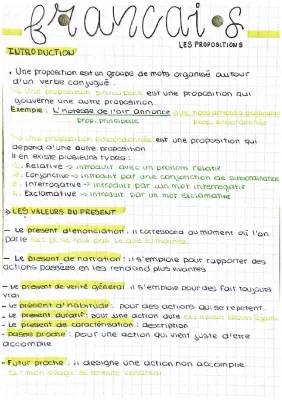 français
LES PROPOSITIONS
INTRODUCTION
• Une proposition est un groupe de mots organisé autour
d'un verbe conjugué.
↳ Une proposition principale est une proposition qui
gouverne une autre proposition.
Exemple : L'ivresse de l'air annonce que nous
prop. principale prop. subordonnée
↳ Une proposition subordonnée est une proposition qui
dépend d'une autre proposition
Il en existe plusieurs types :
1. Relative → introduit avec un pronom relatif
2. Conjonctive → introduit par une conjonction de subordination
3. Interrogative → introduit par un mot interrogatif
4. Exclamative → introduit par un mot exclamatif
LES VALEURS DU PRESENT
- Le présent d'énonciation : il correspond au moment où l'on
parle
- Le présent de narration : il s'emploie pour rapporter des
actions passées en les rendant plus vivantes
- Le présent de vérité général : il s'emploie pour des fait toujours
vrai
- Le présent d'habitude : pour des actions qui se répètent
- Le présent duratif : pour une action qui dure
- Le présent de caractérisation : description
- Passé proche : pour une action qui vient juste d'être
accomplie
- Futur proche : il désigne une action non accomplie